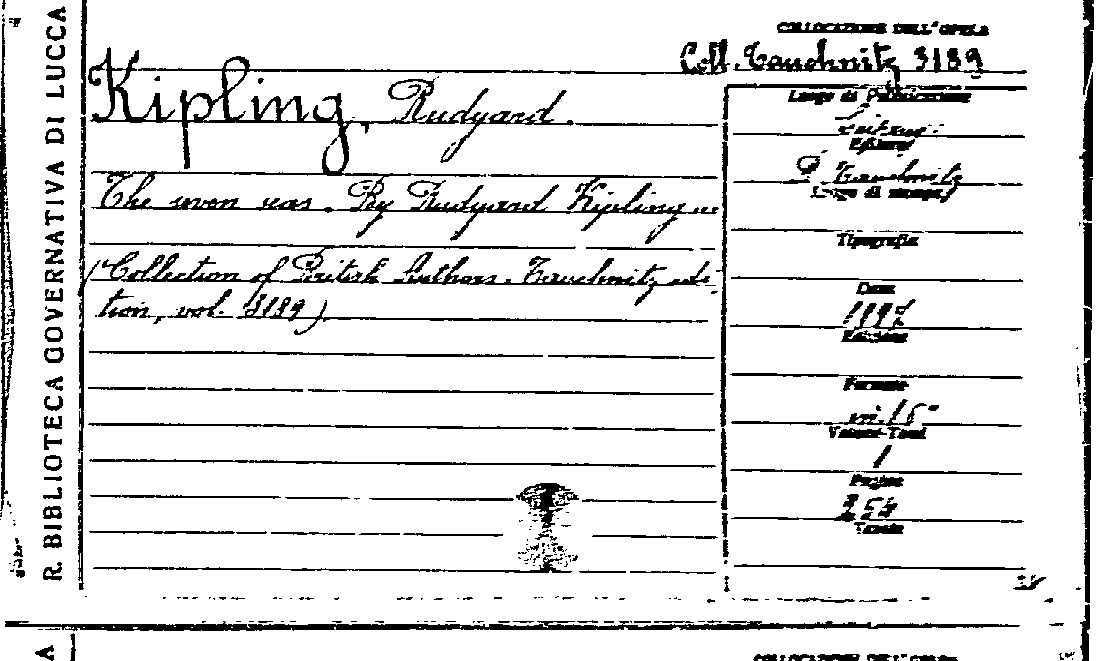 R. BIBLIOTECA GOVERNATIVA DI LUCCA
COLLOCAZIONE DELL'OPERA
Coll. Tauchnitz 3189
Kipling, Rudyard.
The seven seas. By Rudyard Kipling ...
(Collection of British Authors. Tauchnitz edi-
tion, vol. 3189)
Luogo di Pubblicazione
Editore
B. Tauchnitz
Luogo di stampa
Tipografia
Data
1897
Edizione
Formato
in.16°
Volumi-Tomi
1
Pagine
254
Tavole
A
COLLOCAZIONE DELL'OPERA